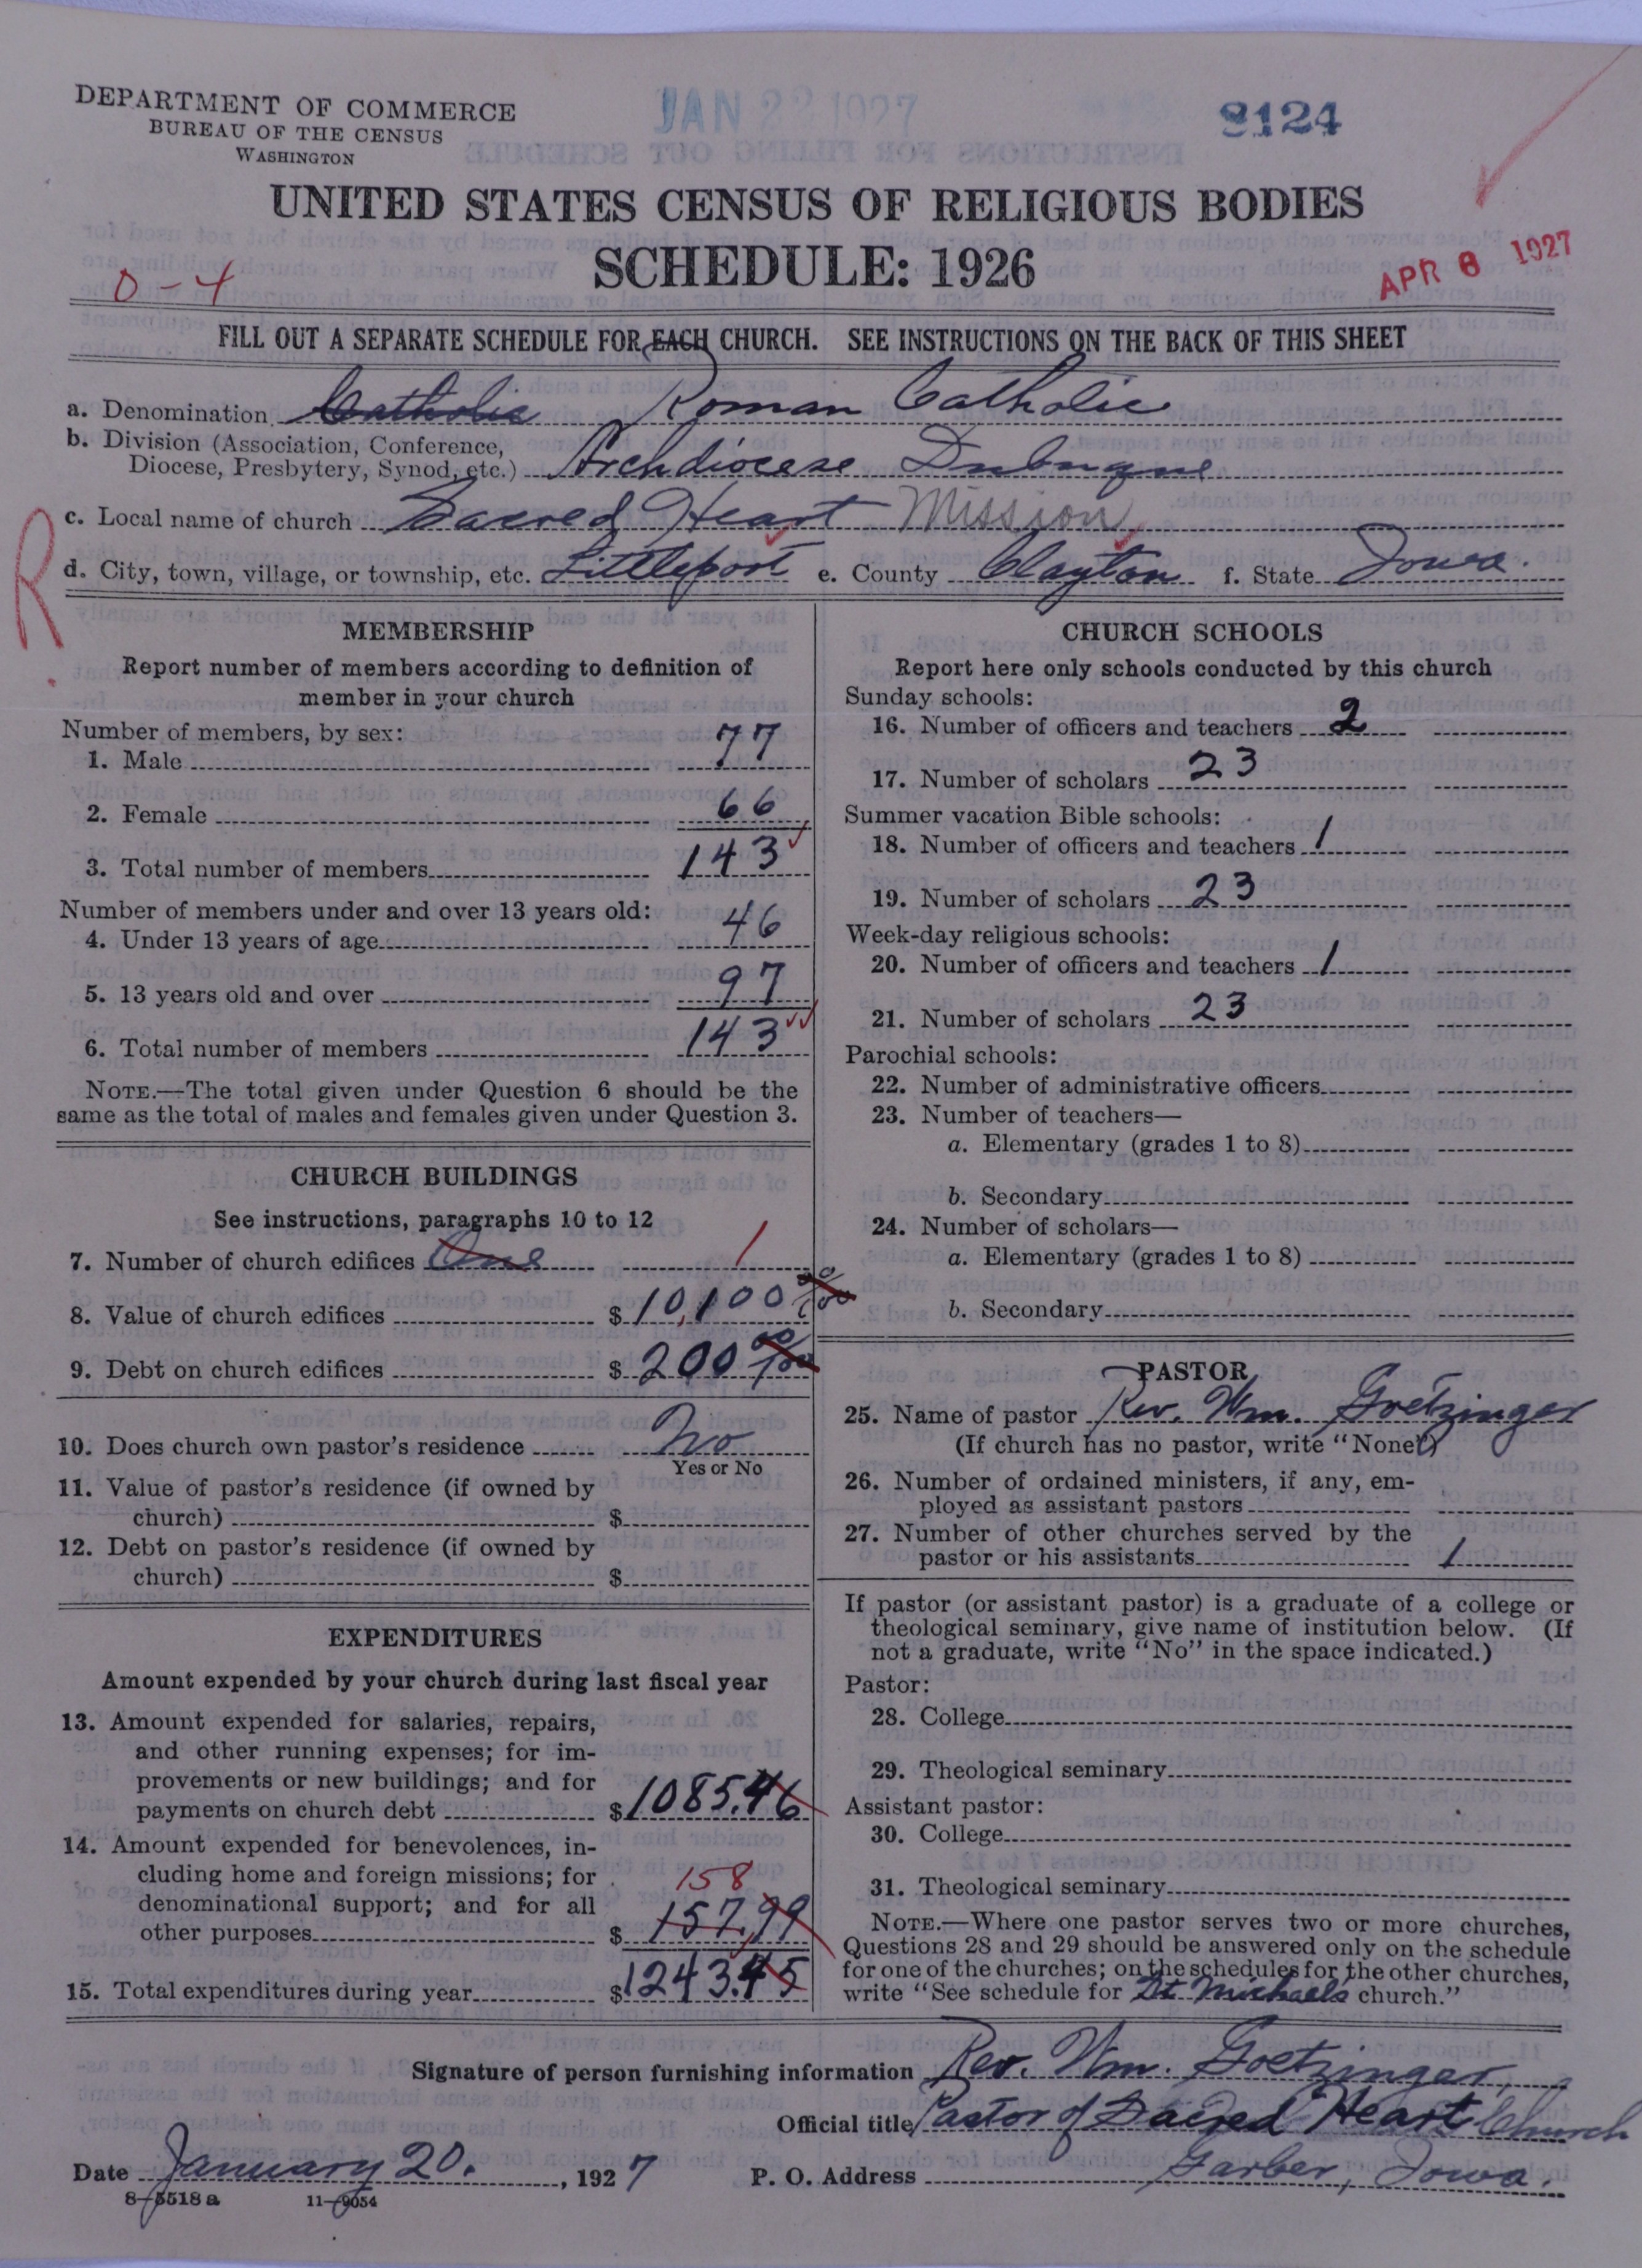 DEPARTMENT OF COMMERCE
BUREAU OF THE CENSUS
WASHINGTON
JAN 22 1927
8124
UNITED STATES CENSUS OF RELIGIOUS BODIES
SCHEDULE: 1926
0-4
APR 8 1927
FILL OUT A SEPARATE SCHEDULE FOR EACH CHURCH. SEE INSTRUCTIONS ON THE BACK OF THIS SHEET
a. Denomination Catholic Roman Catholic
b. Division (Association, Conference,
Diocese, Presbytery, Synod, etc.) Archdiocese Dubuque
c. Local name of church Sacred Heart Mission
R
d. City, town, village, or township, etc. Littleport e. County Clayton f. State Iowa.
MEMBERSHIP
Report number of members according to definition of
member in your church
Number of members, by sex:
1. Male 77
2. Female 66
3. Total number of members 143
Number of members under and over 13 years old:
4. Under 13 years of age 46
5. 13 years old and over 97
6. Total number of members 143
NOTE.—The total given under Question 6 should be the
same as the total of males and females given under Question 3.
CHURCH BUILDINGS
See instructions, paragraphs 10 to 12
7. Number of church edifices One 1
8. Value of church edifices $10,100 00/100
9. Debt on church edifices $200 00/100
10. Does church own pastor's residence No
Yes or No
11. Value of pastor's residence (if owned by
church) $
12. Debt on pastor's residence (if owned by
church) $
EXPENDITURES
Amount expended by your church during last fiscal year
13. Amount expended for salaries, repairs,
and other running expenses; for im-
provements or new buildings; and for
payments on church debt $1085.46
14. Amount expended for benevolences, in-
cluding home and foreign missions; for
158
denominational support; and for all
other purposes $157.99
15. Total expenditures during year $1243.45
CHURCH SCHOOLS
Report here only schools conducted by this church
Sunday schools:
16. Number of officers and teachers 2
17. Number of scholars 23
Summer vacation Bible schools:
18. Number of officers and teachers 1
19. Number of scholars 23
Week-day religious schools:
20. Number of officers and teachers 1
21. Number of scholars 23
Parochial schools:
22. Number of administrative officers
23. Number of teachers—
a. Elementary (grades 1 to 8)
b. Secondary
24. Number of scholars—
a. Elementary (grades 1 to 8)
b. Secondary
PASTOR
25. Name of pastor Rev. Wm. Goetzinger
(If church has no pastor, write "None")
26. Number of ordained ministers, if any, em-
ployed as assistant pastors
27. Number of other churches served by the
pastor or his assistants 1
If pastor (or assistant pastor) is a graduate of a college or
theological seminary, give name of institution below. (If
not a graduate, write "No" in the space indicated.)
Pastor:
28. College
29. Theological seminary
Assistant pastor:
30. College
31. Theological seminary
NOTE.—Where one pastor serves two or more churches,
Questions 28 and 29 should be answered only on the schedule
for one of the churches; on the schedules for the other churches,
write "See schedule for St. Michaels church."
Signature of person furnishing information Rev. Wm. Goetzinger,
Official title Pastor of Sacred Heart Church
Date January 20., 1927 P. O. Address Garber, Iowa.
8—5518 a 11—9054